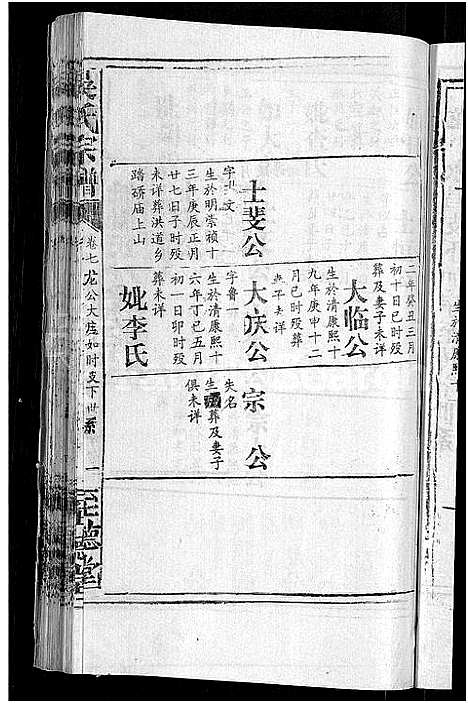 吴氏宗谱
卷七 龙公大庄如时支下世系
一
至德堂
士斐公
生於明崇祯十
三年庚辰正月
廿七日子时殁
未详葬洪道乡
踏硚庙上山
二年癸丑三月
初十日巳时殁
葬及妻子未详
大临公
生於清康熙十
九年庚申十二
月巳时殁葬
妻子未详
大庆公
字鲁一
生於清康熙十
六年丁巳五月
初一日卯时殁
葬未详
妣李氏
宗公
失名
生殁葬及妻子
俱未详
生於清康熙十